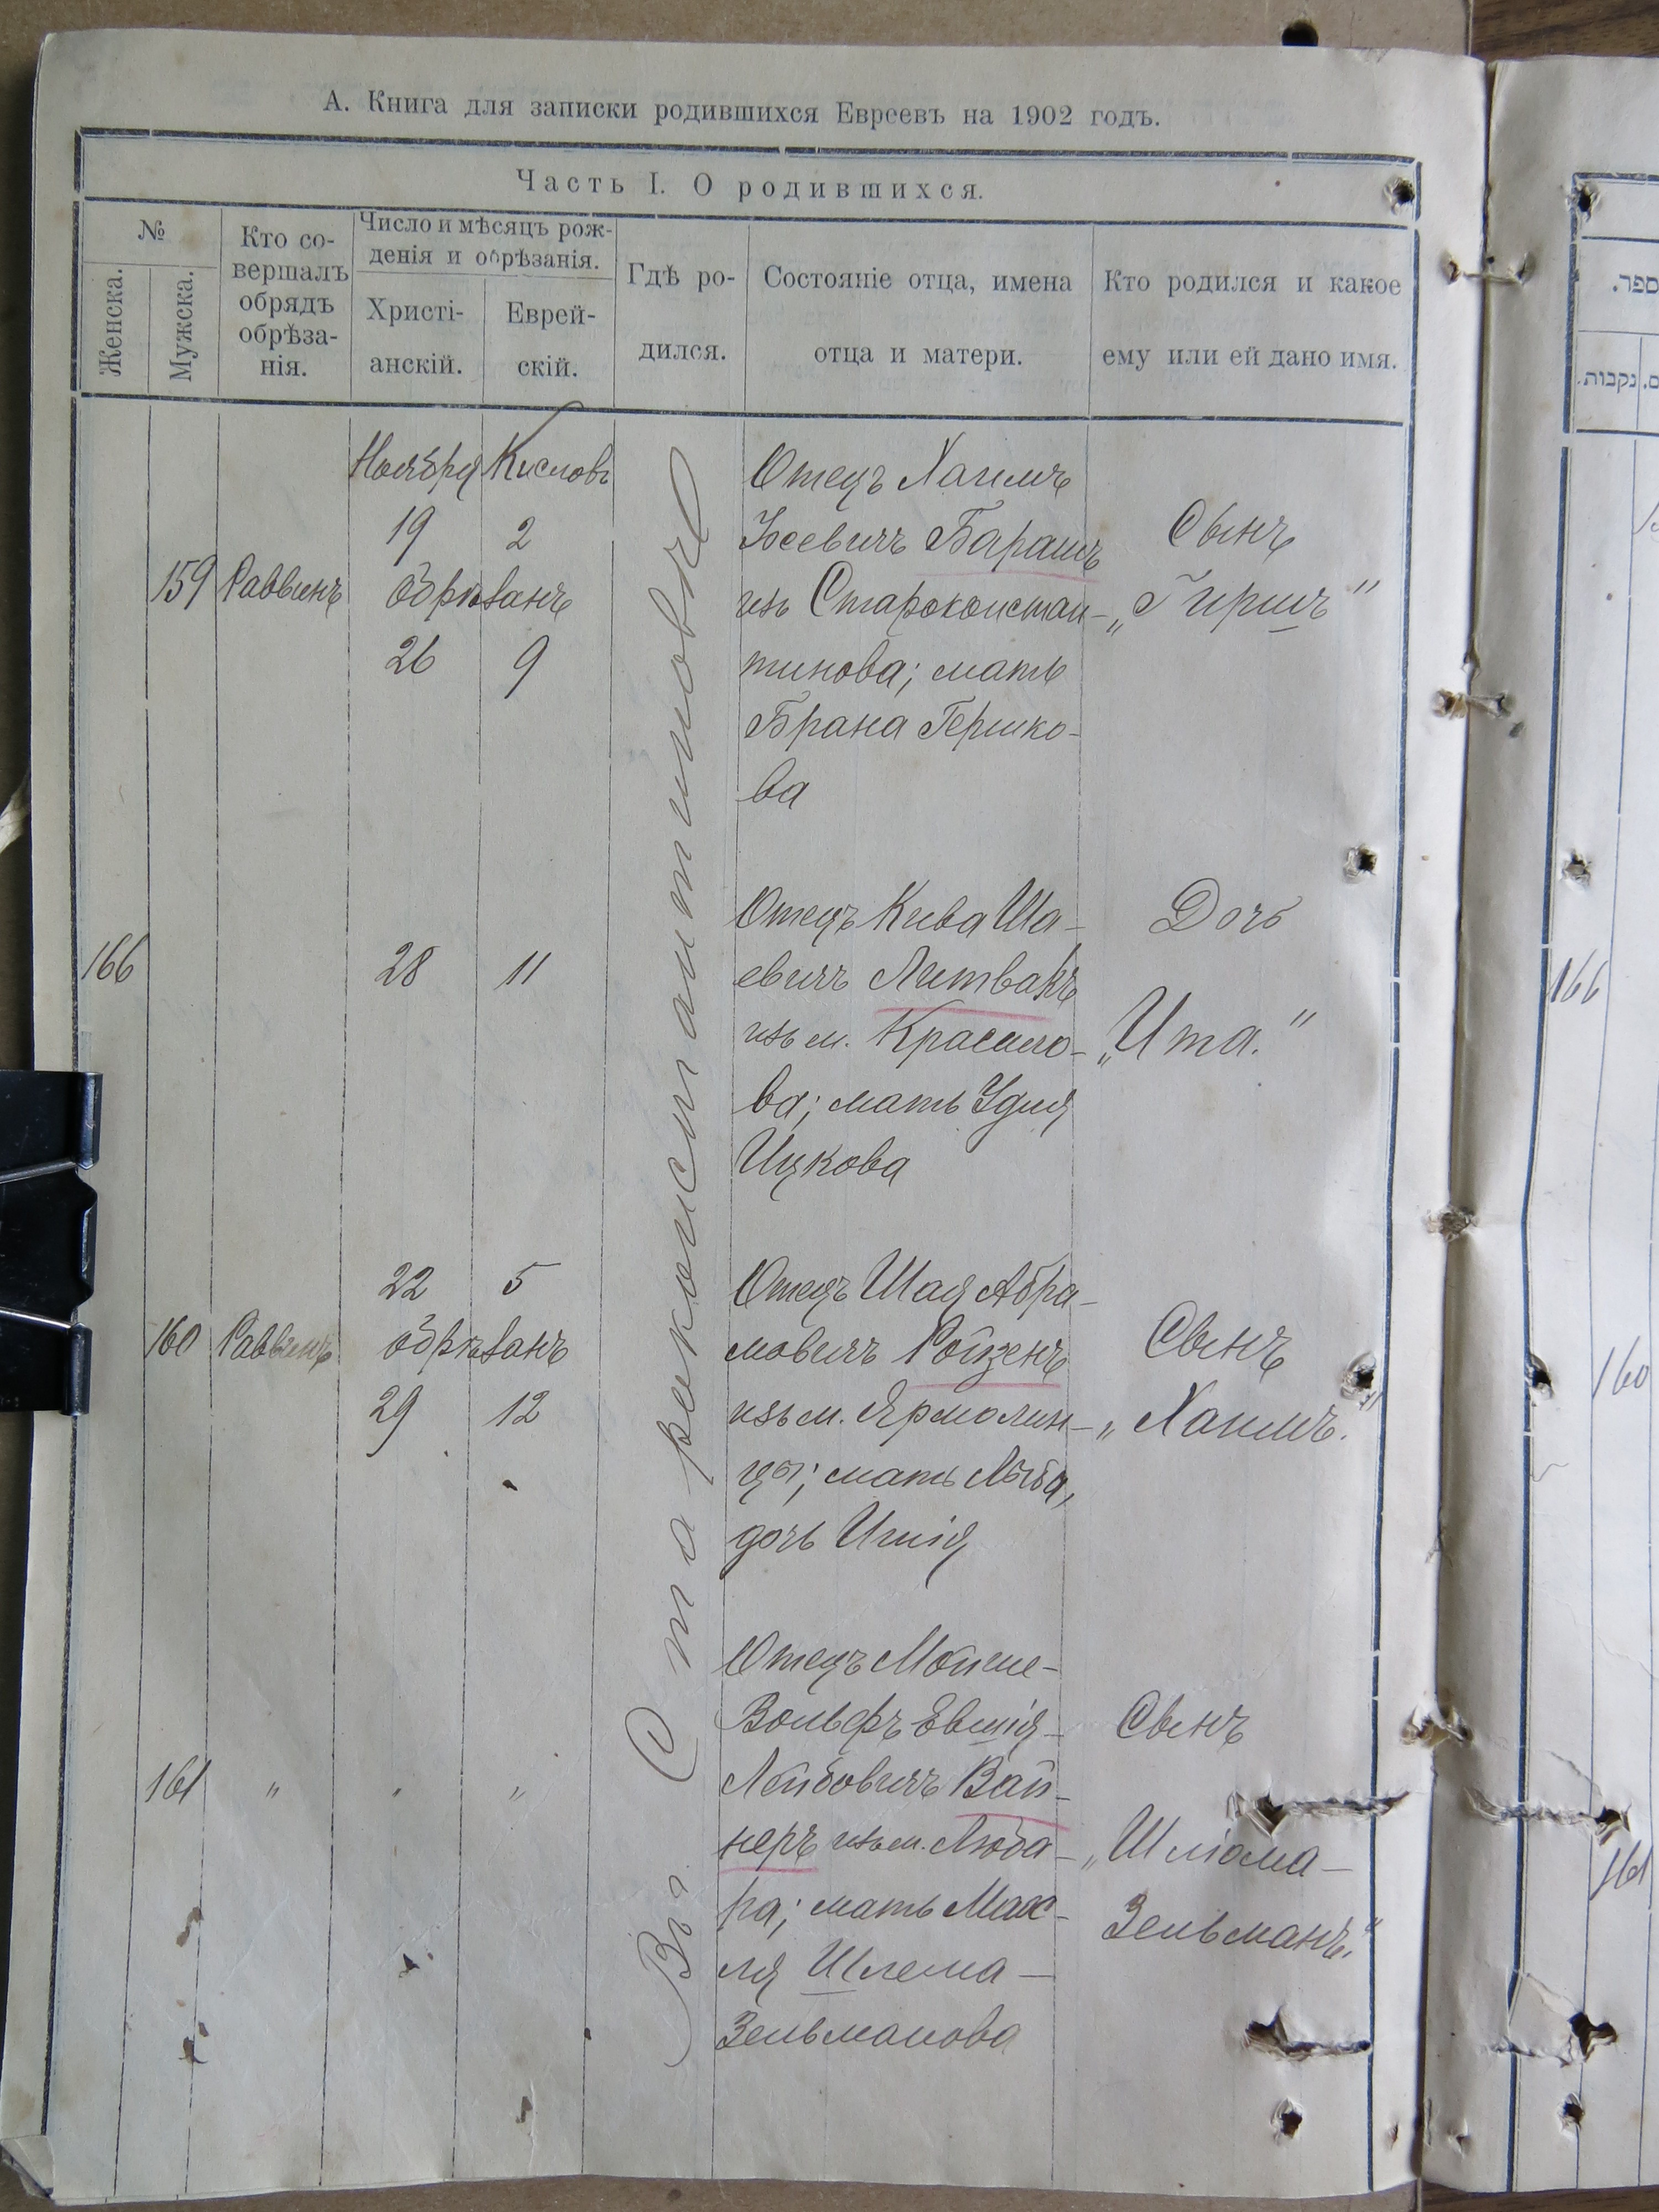 А. Книга для записки родившихся Евреевъ на 1902 годъ.
Часть I. О родившихся.
№
Женска.
Мужска.
Кто со-
вершалъ
обрядъ
обрѣза-
нія.
Число и мѣсяцъ рож-
денія и обрѣзанія.
Христі-
анскій.
Еврей-
скій.
Гдѣ ро-
дился.
Состояніе отца, имена
отца и матери.
Кто родился и какое
ему или ей дано имя.
Въ Староконстантиновѣ
Ноября Кисловъ
19 2
159 Раввинъ обрѣзанъ
26 9
Отецъ Хаимъ
Іосевичъ Барашъ
изъ Староконстан-
тинова; мать
Брана Гершко-
ва
Сынъ
„Гиршъ“
166 28 11
Отецъ Кива Ша-
евичъ Литвакъ
изъ м. Красило-
ва; мать Удля
Ицкова
Дочь
„Ита.“
22 5
160 Раввинъ обрѣзанъ
29 12
Отецъ Шая Абра-
мовичъ Ройзенъ
изъ м. Ярмолин-
цы; мать
дочь
Сынъ
„Хаимъ.“
161 " " "
Отецъ Мойше-
Вольфъ Евшія-
Лейбовичъ Вай-
неръ изъ м. Люба-
ра; мать Мах-
ля Шлема-
Зельманова
Сынъ
„Шліома-
Зельманъ.“
ספר.
נקבות.
166
160
161